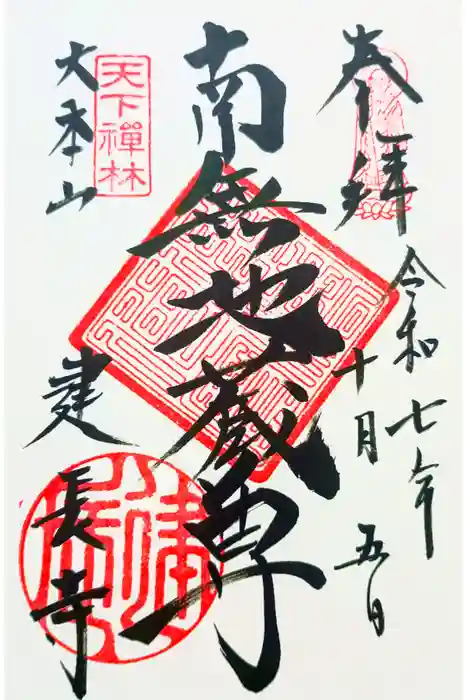 奉拝
令和七年
十月五日
南無地蔵尊
天下禪林
大本山
建長寺